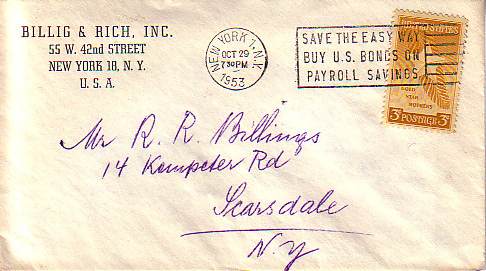 BILLIG & RICH, INC.
55 W. 42nd STREET
NEW YORK 18, N. Y.
U. S. A.
NEW YORK 1, N.Y.
OCT 29
7 30 PM
1953
SAVE THE EASY WAY
BUY U.S. BONDS ON
PAYROLL SAVINGS
UNITED STATES
GOLD
STAR
MOTHERS
3¢ POSTAGE 3¢
Mr R. R. Billings
14 Rd
Scarsdale
N. Y